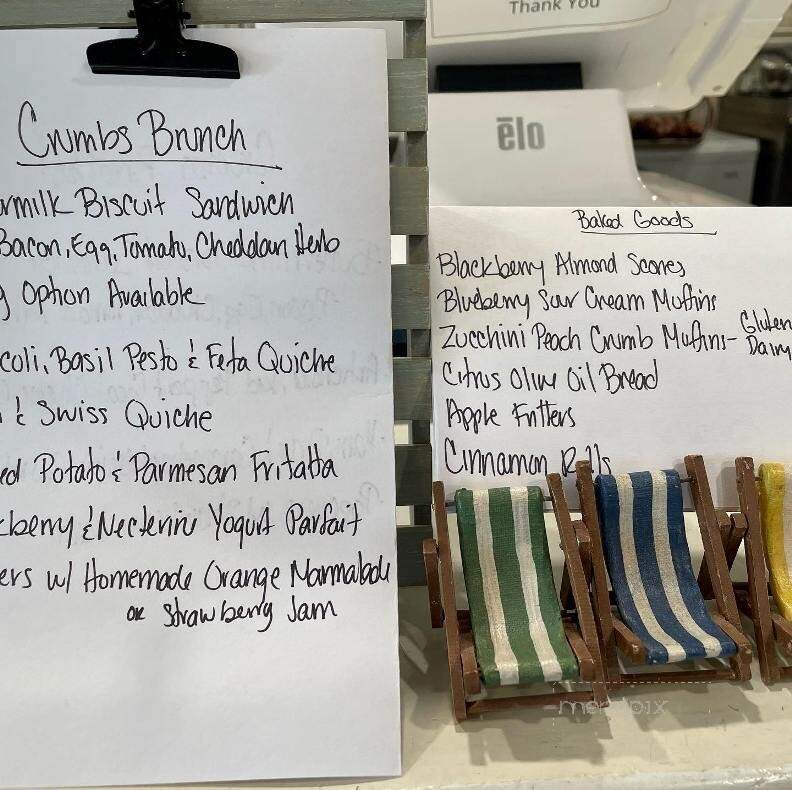 Thank You
ēlo
Crumbs Brunch
ermilk Biscuit Sandwich
Bacon, Egg, Tomato, Cheddar Herb
g Option Available
coli, Basil Pesto & Feta Quiche
& Swiss Quiche
ed Potato & Parmesan Fritatta
kberry & Necterine Yogurt Parfait
ers w/ Homemade Orange Marmalade
or Strawberry Jam
Baked Goods
Blackberry Almond Scones
Blueberry Sour Cream Muffins
Zucchini Peach Crumb Muffins - Gluten
Dairy
Citrus Olive Oil Bread
Apple Fritters
Cinnamon Rolls